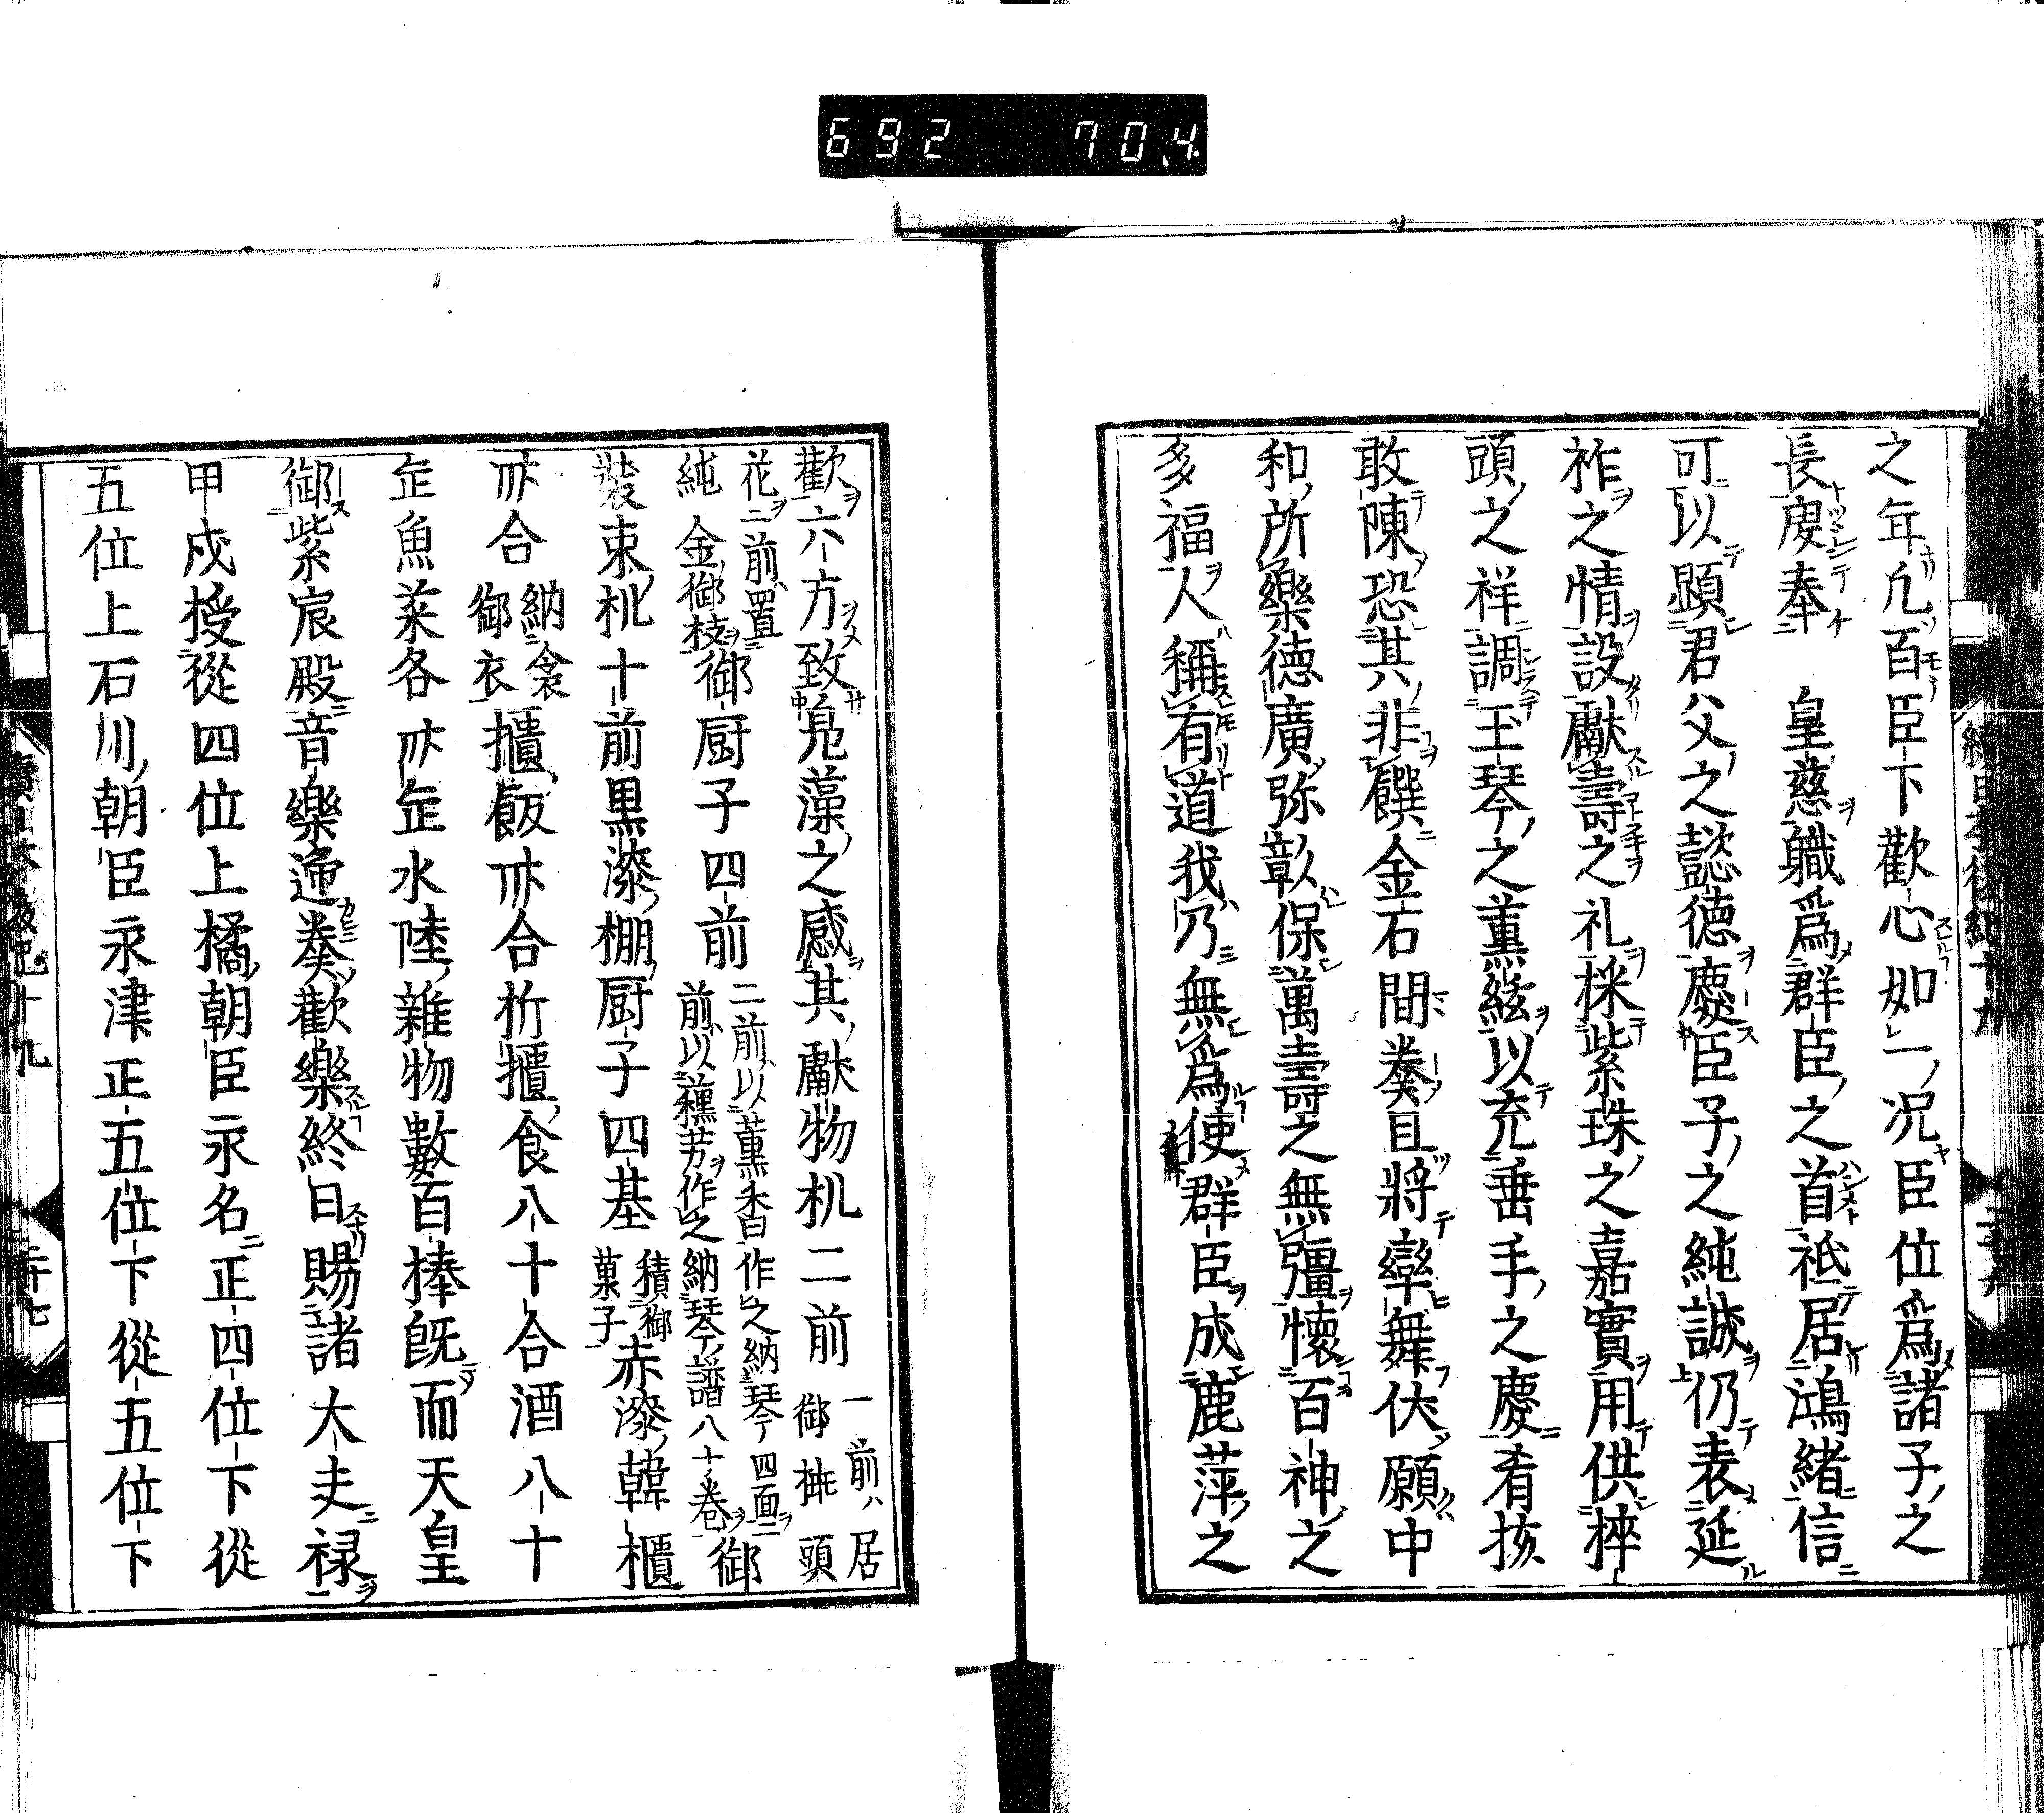 692 70.4
之年凢百臣下歡心如一况臣位爲諸子之
長虔奉 皇慈職爲群臣之首祗居鴻緒信
可以顕君父之懿德慶臣子之純誠仍表延
祚之情設獻壽之礼採紫珠之嘉實用供捽
頭之祥調玉琴之薫絃以充垂手之慶肴核
敢陳恐其非饌金石間奏且將率舞伏願中
和所樂德廣弥彰保萬壽之無彊懷百神之
多福人稱有道我乃無爲使群臣成鹿萍之
歡六方致鳬藻之感其獻物机二前一前居御挿頭
花二前置純金御枝御厨子四前二前以薫香作之納琴四面二前以蘓芳作之納琴譜八十巻御
裝束机十前黒漆棚厨子四基積御菓子赤漆韓櫃
卌合納衾御衣櫃飯卌合折櫃食八十合酒八十
缶魚菜各卌缶水陸雜物數百捧旣而天皇
御紫宸殿音樂逓奏歡樂終日賜諸大夫禄
甲戌授從四位上橘朝臣永名正四位下從
五位上石川朝臣永津正五位下從五位下